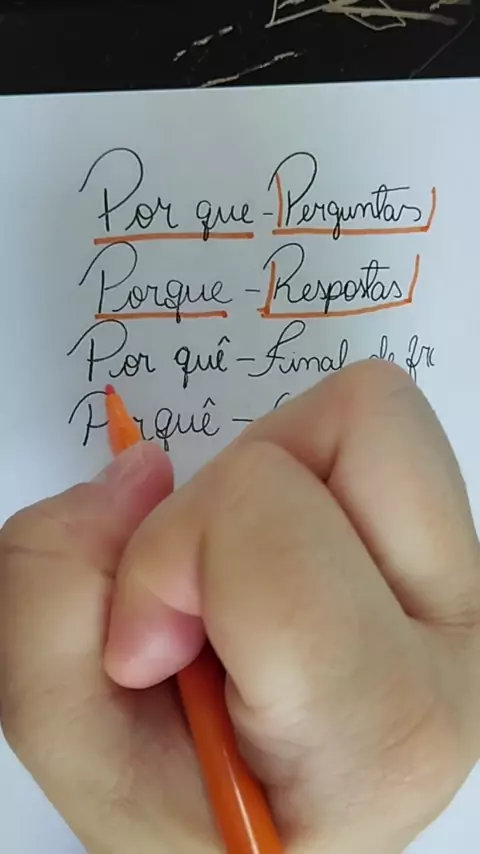 Por que - Perguntas
Porque - Respostas
Por quê - Final de fr
quê -